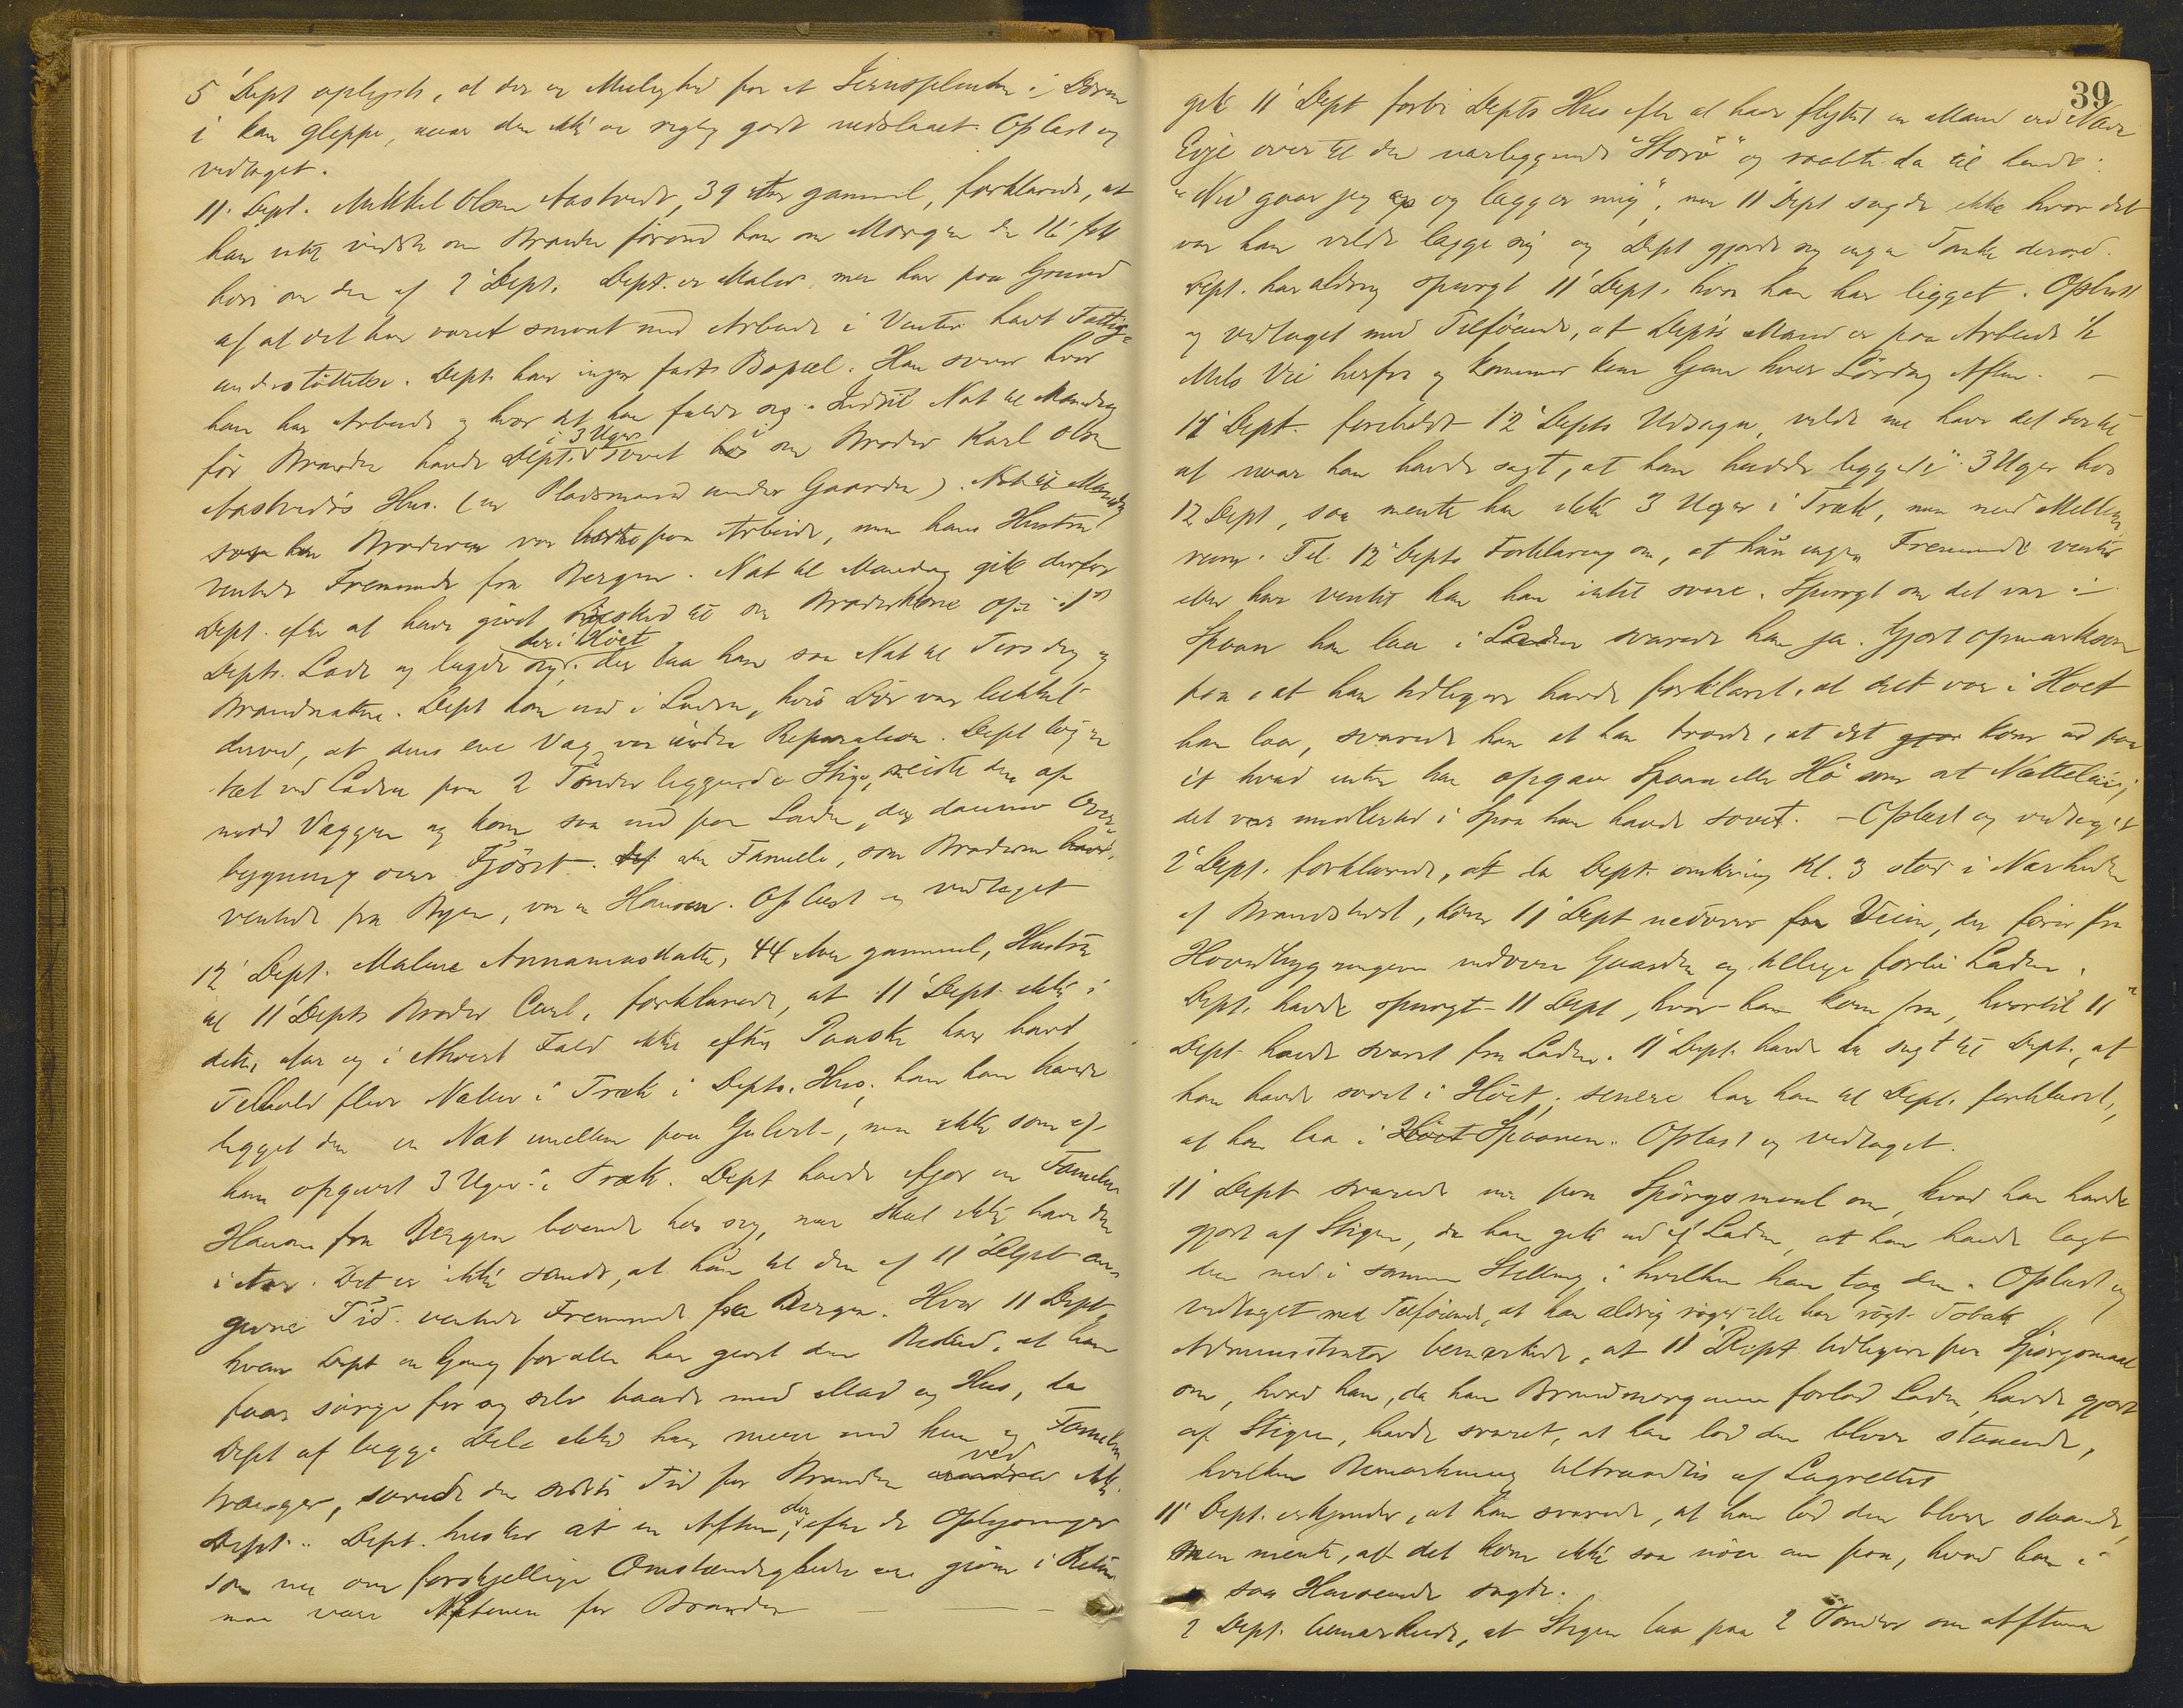 5' Dept oplyste, at der er Mulighed for at Jernsplinten i Døren
i kan gleppe, naar den ikke er rigtig godt nedslaaet. Oplæst og
vedtaget.
11. Dept. Mikkel Olsen Aastvedt, 39 Aar gammel, forklarede, at
han intet vidste om Branden førend han om Morgen den 16' fik
høre om den af 2' Dept. Dept. er Maler, men har paa Grund
af at det har været smaat med Arbeide i Vinter havt Fattig-
understøttelse. Dept. har ingen fast Bopæl. Han sover hvor
han har Arbeide og hvor det kan falde sig. Indtil Nat til Mandag
før Branden havde Dept. i 3 Uger sovet hos sin Broder Karl Olsen
Aastvedts Hus. (en Pladsmand under Gaarden). Nat til Mandag
sov han Broderen var borte paa Arbeide, men hans Hustru
ventede Fremmede fra Bergen. Nat til Mandag gik derfor
Dept. efter at have givet Besked til sin Broderkone op i 1ste
Depts. Lade og lagde sig der i Høet. der laa han saa Nat til Tirsdag og
Brandnatten. Dept kom ind i Laden, hvis Dør var lukket
derved, at dens ene Væg var under Reparation. Dept tog en
tæt ved Laden paa 2 Tønder liggende Stige, reiste den op
mod Væggen og kom saa ind paa Laden, der danner Over-
bygning over Fjøset. Def den Familie, som Broderen havde
ventede fra Byen, var en Hansen. Oplæst og vedtaget
12' Dept. Malene Annaniasdatter, 44 Aar gammel, Hustru
til 11' Depts Broder Carl, forklarede, at 11' Dept. ikke i
dette Aar og i ethvert Fald ikke efter Paaske har havt
Tilhold flere Nætter i Træk i Depts. Hus; han kan have
ligget der en Nat imellem paa Gulvet, men ikke som af
ham opgivet 3 Uger i Træk. Dept havde ifjor en Familie
Hansen fra Bergen boende hos sig, men skal ikke have den
i Aar. Det er ikke sandt, at hun til den af 11' Dept an-
givne Tid ventede Fremmede fra Bergen. Hvor 11 Dept,
hvem Dept en Gang for alle har givet den Besked, at han
faar sørge for sig selv baade med Mad og Hus, da
Dept af begge Dele ikke har mere end hun og Familien
trænger, sovede den sidste Tid før Branden ved ikke
Dept. Dept. husker at en Aften, der efter de Oplysninger
som nu om forskjellige Omstændigheder ere givne i Retten
maa være Aftenen før Branden
39
gik 11' Dept forbi Depts Hus efter at have flyttet en Mand ved Navn
Evje over til den nærliggende "Storø" og raabte da til hende:
"Nu gaar jeg op og lægger mig", men 11' Dept sagde ikke hvor det
var han vilde lægge sig og Dept gjorde sig ingen Tanke derved.
Dept. har aldrig spurgt 11' Dept. hvor han har ligget. Oplæst
og vedtaget med Tilføiende, at Depts Mand er paa Arbeide ½
Mils Vei herfra og kommer kun hjem hver Lørdag Aften. —
11' Dept. foreholdt 12' Depts Udsagn, vilde nu have det dertil
at naar han havde sagt, at han havde ligget i 3 Uger hos
12 Dept, saa mente han ikke 3 Uger i Træk, men med Mellem-
rum. Til 12' Depts Forklaring om, at hun ingen Fremmede venter
eller har ventet kan han intet svare. Spurgt om det var i
Spaan han laa i Laden svarede han ja. Gjort opmærksom
paa, at han tidligere havde forklaret, at det var i Høet
han laa, svarede han at han troede, at det gjør kom ud paa
ét hvad enten han opgav Spaan eller Hø som at Natteleie;
det var imidlertid i Spaa han havde sovet. – Oplæst og vedtaget
2' Dept. forklarede, at da Dept. omkring Kl. 3 stod i Nærheden
af Brandstedet, kom 11' Dept nedover fra Veien, der fører fra
Hovedbygningen nedover Gaarden og tillige forbi Laden.
Dept. havde spurgt 11 Dept, hvor han kom fra, hvortil 11'
Dept havde svaret fra Laden. 11' Dept. havde da sagt til Dept., at
han havde sovet i Høet; senere har han til Dept. forklaret,
at han laa i Høet Spaanen. Oplæst og vedtaget.
11' Dept svarede nu paa Spørgsmaal om, hvad han havde
gjort af Stigen, da han gik ud af Laden, at han havde lagt
den ned i samme Stilling i hvilken han tog den. Oplæst og
vedtaget med Tilføiende, at han aldrig røger eller har røgt Tobak
Administrator bemærkede, at 11' Dept tidligere paa Spørgsmaal
om, hvad han, da han Brandmorgenen forlod Laden, havde gjort
af Stigen, havde svaret, at han lod den blive staaende,
hvilken Bemærkning tiltraadtes af Lagrettet
11' Dept. erkjender, at han svarede, at han lod den blive staaende,
men mente, at det kom ikke saa nøie an paa, hvad han i
saa Henseende sagde.
2 Dept. bemærkede, at Stigen laa paa 2 Tønder om Aftenen